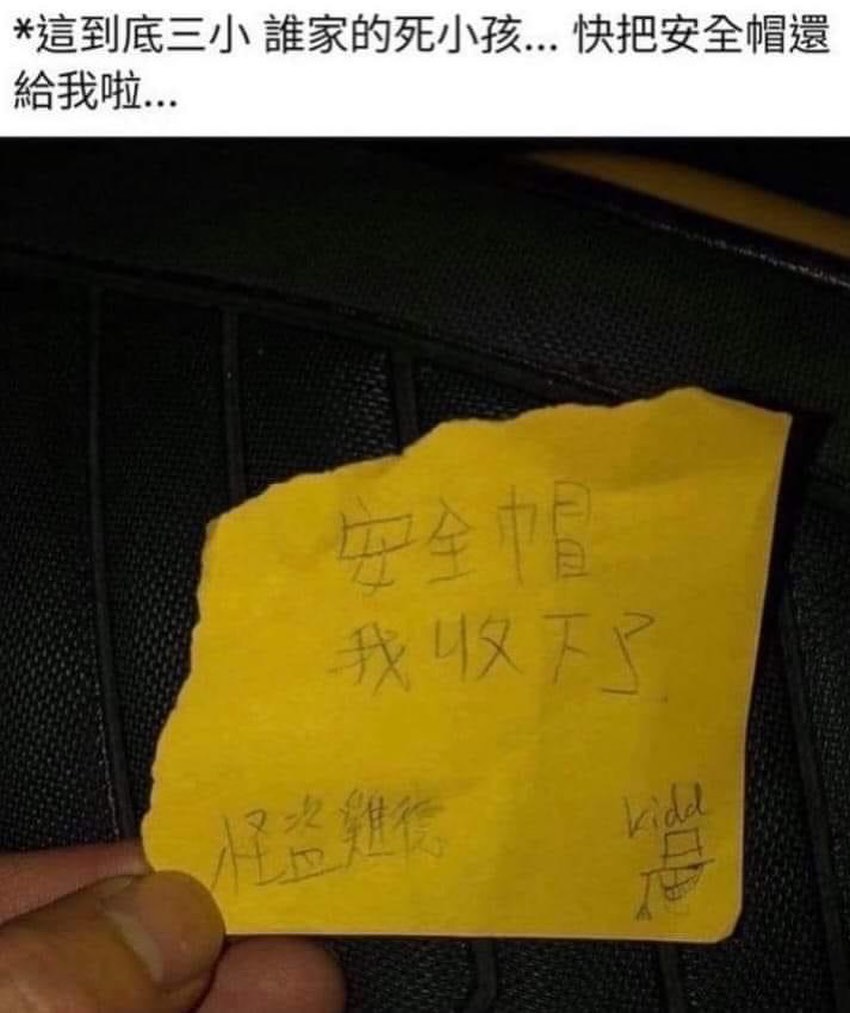 *這到底三小 誰家的死小孩... 快把安全帽還
給我啦...
安全帽
我收下了
怪盜雞德
kidd